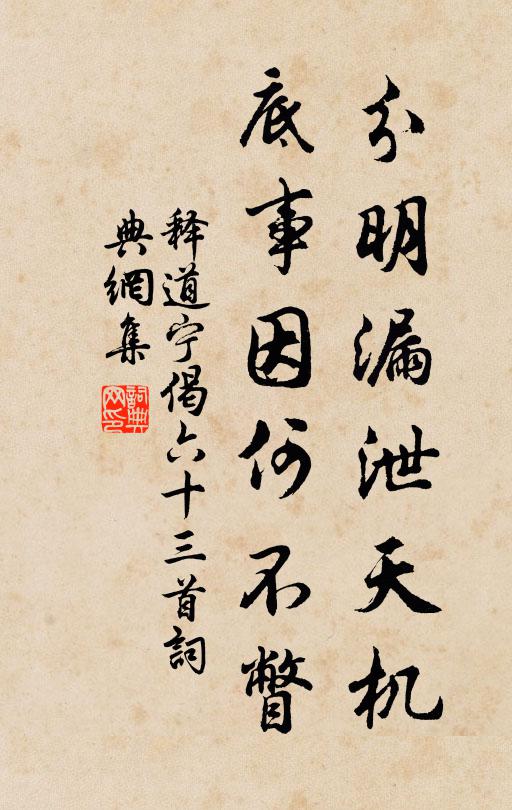 分明漏泄天机
底事因何不瞥
释道宁偈六十三首詞
典網集
詞典
网印